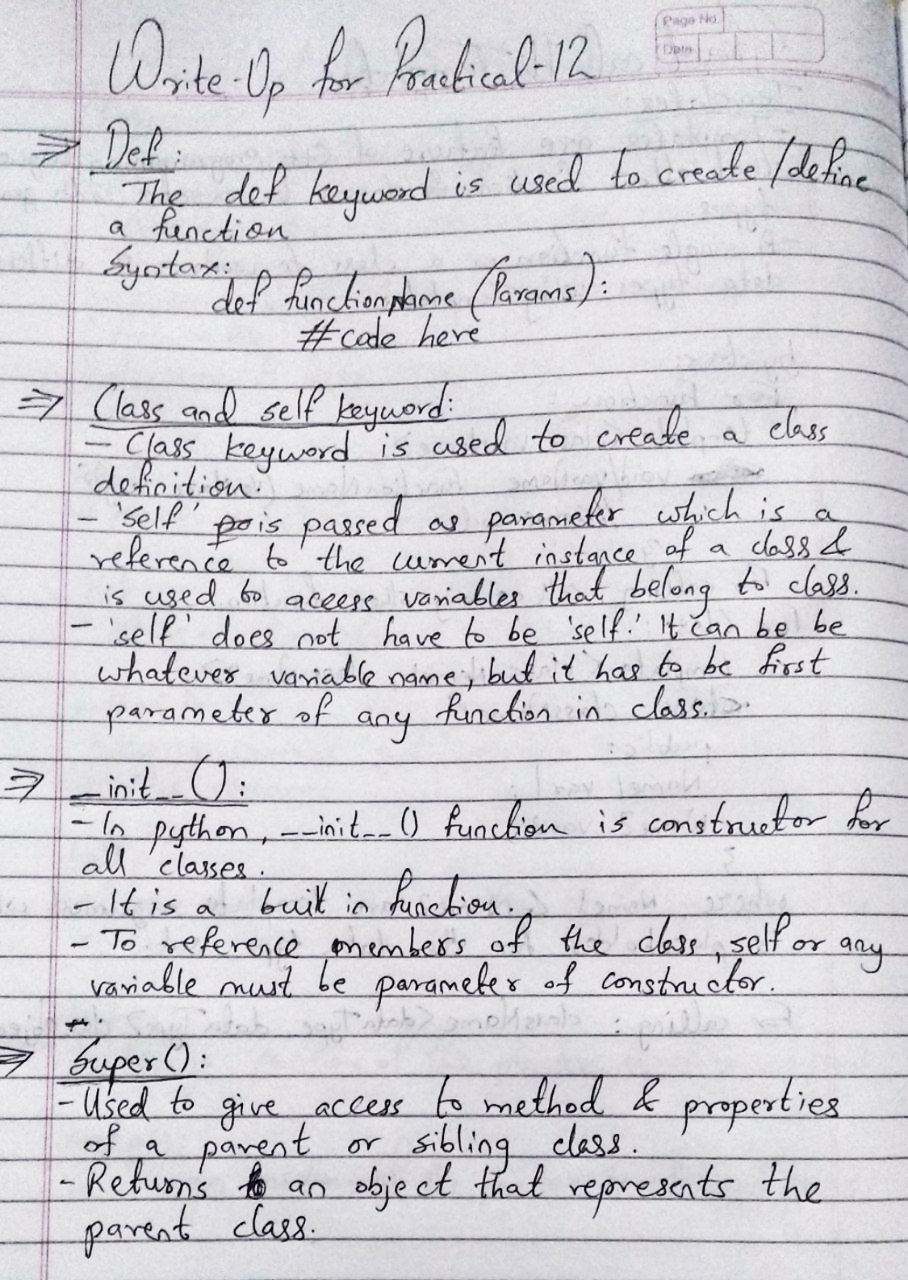 Page No.
Date
Write-Up for Practical-12
⇒ Def:
The def keyword is used to create/define
a function
Syntax:
def functionName (Params):
#code here
⇒ Class and self keyword:
- Class keyword is used to create a class
definition.
- 'self' is passed as parameter which is a
reference to the current instance of a class &
is used to access variables that belong to class.
- 'self' does not have to be 'self.' It can be be
whatever variable name, but it has to be first
parameter of any function in class.
⇒ __init__():
- In python, __init__() function is constructor for
all classes.
- It is a built in function.
- To reference members of the class, self or any
variable must be parameter of constructor.
⇒ Super():
- Used to give access to method & properties
of a parent or sibling class.
- Returns an object that represents the
parent class.